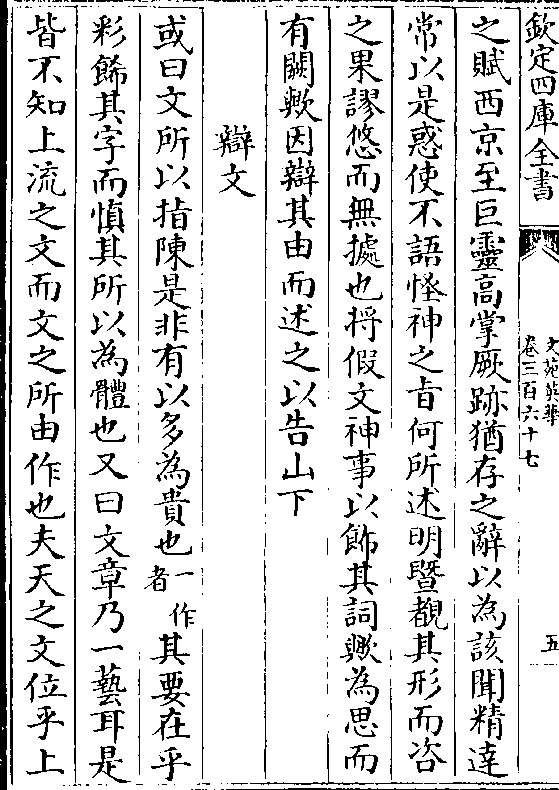 欽定四庫全書
文苑英華
卷三百六十七
五
之賦西京至巨靈高掌厥跡猶存之辭以為該聞精達
常以是惑使不語怪神之旨何所述明暨覩其形而咨
之果謬悠而無據也将假文神事以飾其詞歟為思而
有闕歟因辯其由而述之以告山下
辯文
或曰文所以指陳是非有以多為貴也一作者其要在乎
彩飾其字而慎其所以為體也又曰文章乃一藝耳是
皆不知上流之文而文之所由作也夫天之文位乎上